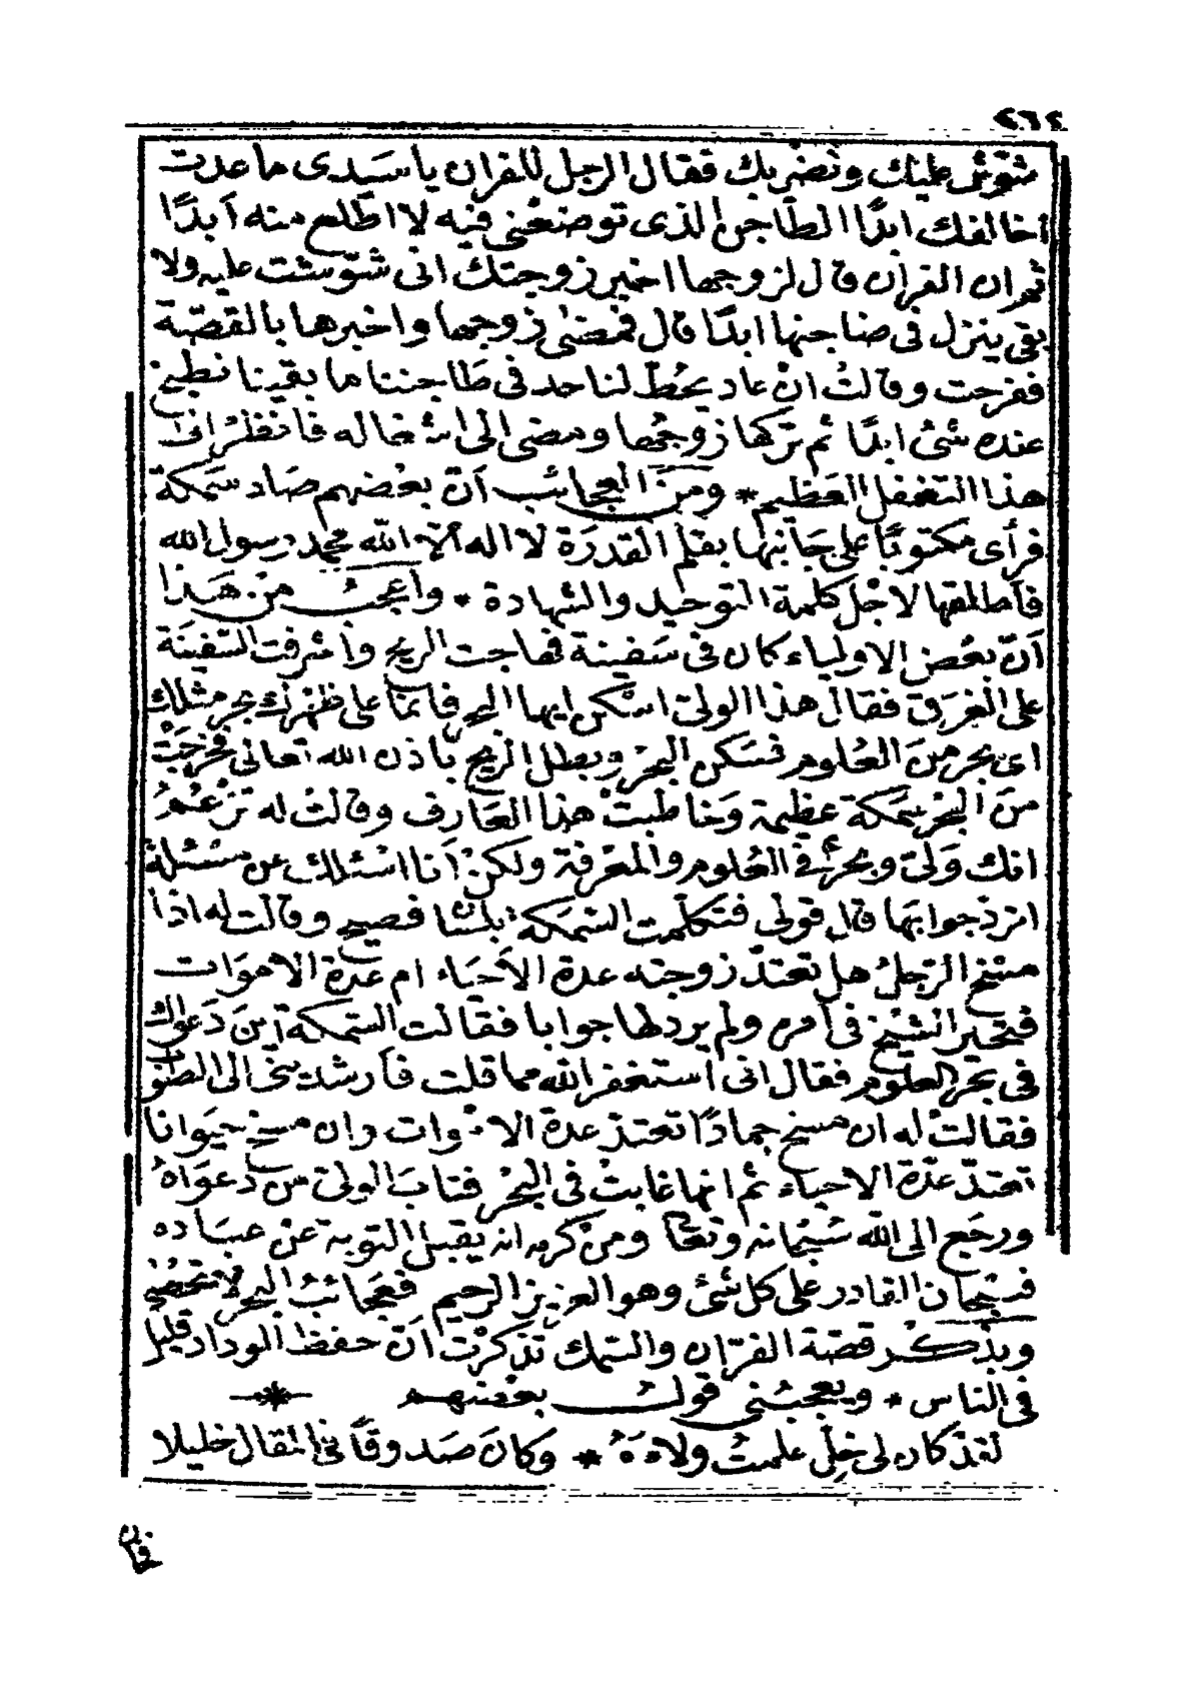 ٤٦٤
شوش عليك وتضربك فقال الرجل للفران يا سيدى ما عدت
أخالفك ابدًا الطاجن الذى توضعنى فيه لا اطلع منه أبدًا
ثم ان الفران قال لزوجها اخبر زوجتك انى شوشت عليه ولا
بقى ينزل فى ضاجنها ابدًا قال فمضى زوجها واخبرها بالقصّة
ففرحت وقالت ان عاد يحطّ لنا حد فى طاجننا ما بقينا نطبخ
عنده شئ ابدًا ثم تركها زوجها ومضى الى اشغاله فانظر الى
هذا التغفل العظيم * ومنَ العجائب أنّ بعضهم صاد سمكة
فرأى مكتوبًا على جَانبها بقلم القدرَة لا اله الا الله محمد رسول الله
فأطلقها لاجْل كلمة التوحيد والشهادة * وأعجب من هَذا
أنّ بعض الاولياء كان فى سَفينة فهاجت الريح وأشرفت السّفينَة
على الغرَق فقال هذا الولىّ اسْكن ايها البحر فانما على ظهرك بحر مثلك
اى بحر منَ العُلوم فسَكن البحْر وبطل الريح باذن الله تعالى فخرجَتْ
منَ البحْر سمكة عظيمة وَخاطبتْ هذا العَارف وقالتْ له تزْعُمُ
انك وَلىّ وبحرٌ فى العُلوم والمعْرفة ولكنْ أنا اسْئلك عن مسْئلة
اتردّ جوابَها قال قولى فتكلّمت السّمَكة بلسَان فصيح وقالت له اذا
مسخ الرّجلُ هل تعتدّ زوجته عدة الأحيَاء ام عدّة الاموَات
فتحير الشيخ فى أمره ولم يرد لها جوابا فقالت السّمكة أينَ دَعوَاك
فى بحْر العلوم فقال انى أستغفر الله مما قلت فأرشدينى الى الصّوَ
فقالتْ له ان مسخ جمادًا تعتدّ عدة الاموات وان مسخ حيَوانا
تعتدّ عدّة الاحياء ثم انها غابتْ فى البحْر فتابَ الولىّ من دَعوَاهُ
ورجَع الى الله سُبْحانه وتعَا ومنْ كرمه انه يقبل التوبة عنْ عبَاده
فسُبْحان القادر على كل شئ وهو العزيز الرحيم فعجَائبُ البحر لا تحْصَى
وبذكر قصّة الفرّان والسّمك تذكرْت أنّ حفظ الوداد قليل
فى الناس * ويعجبُنى قولُ بعْضهم *
لقدْ كان لى خِلّ علمتُ ولاءَهُ * وكانَ صَدوقًا فى المقال خليلا